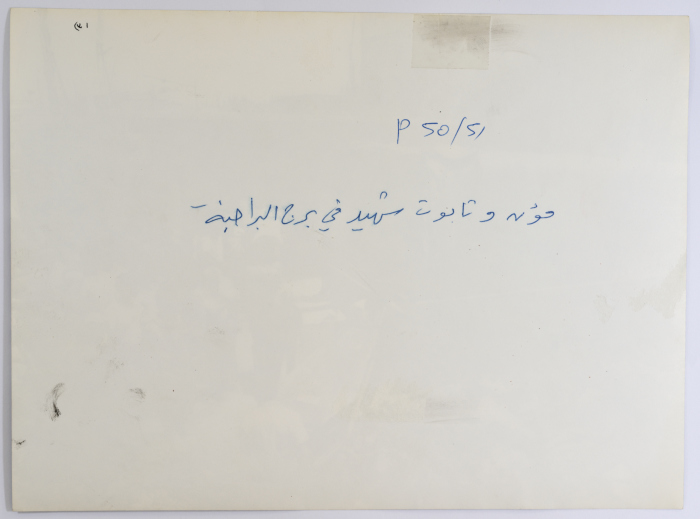 P 50/51
مؤن و تابوت شهيد في برج البراجنة